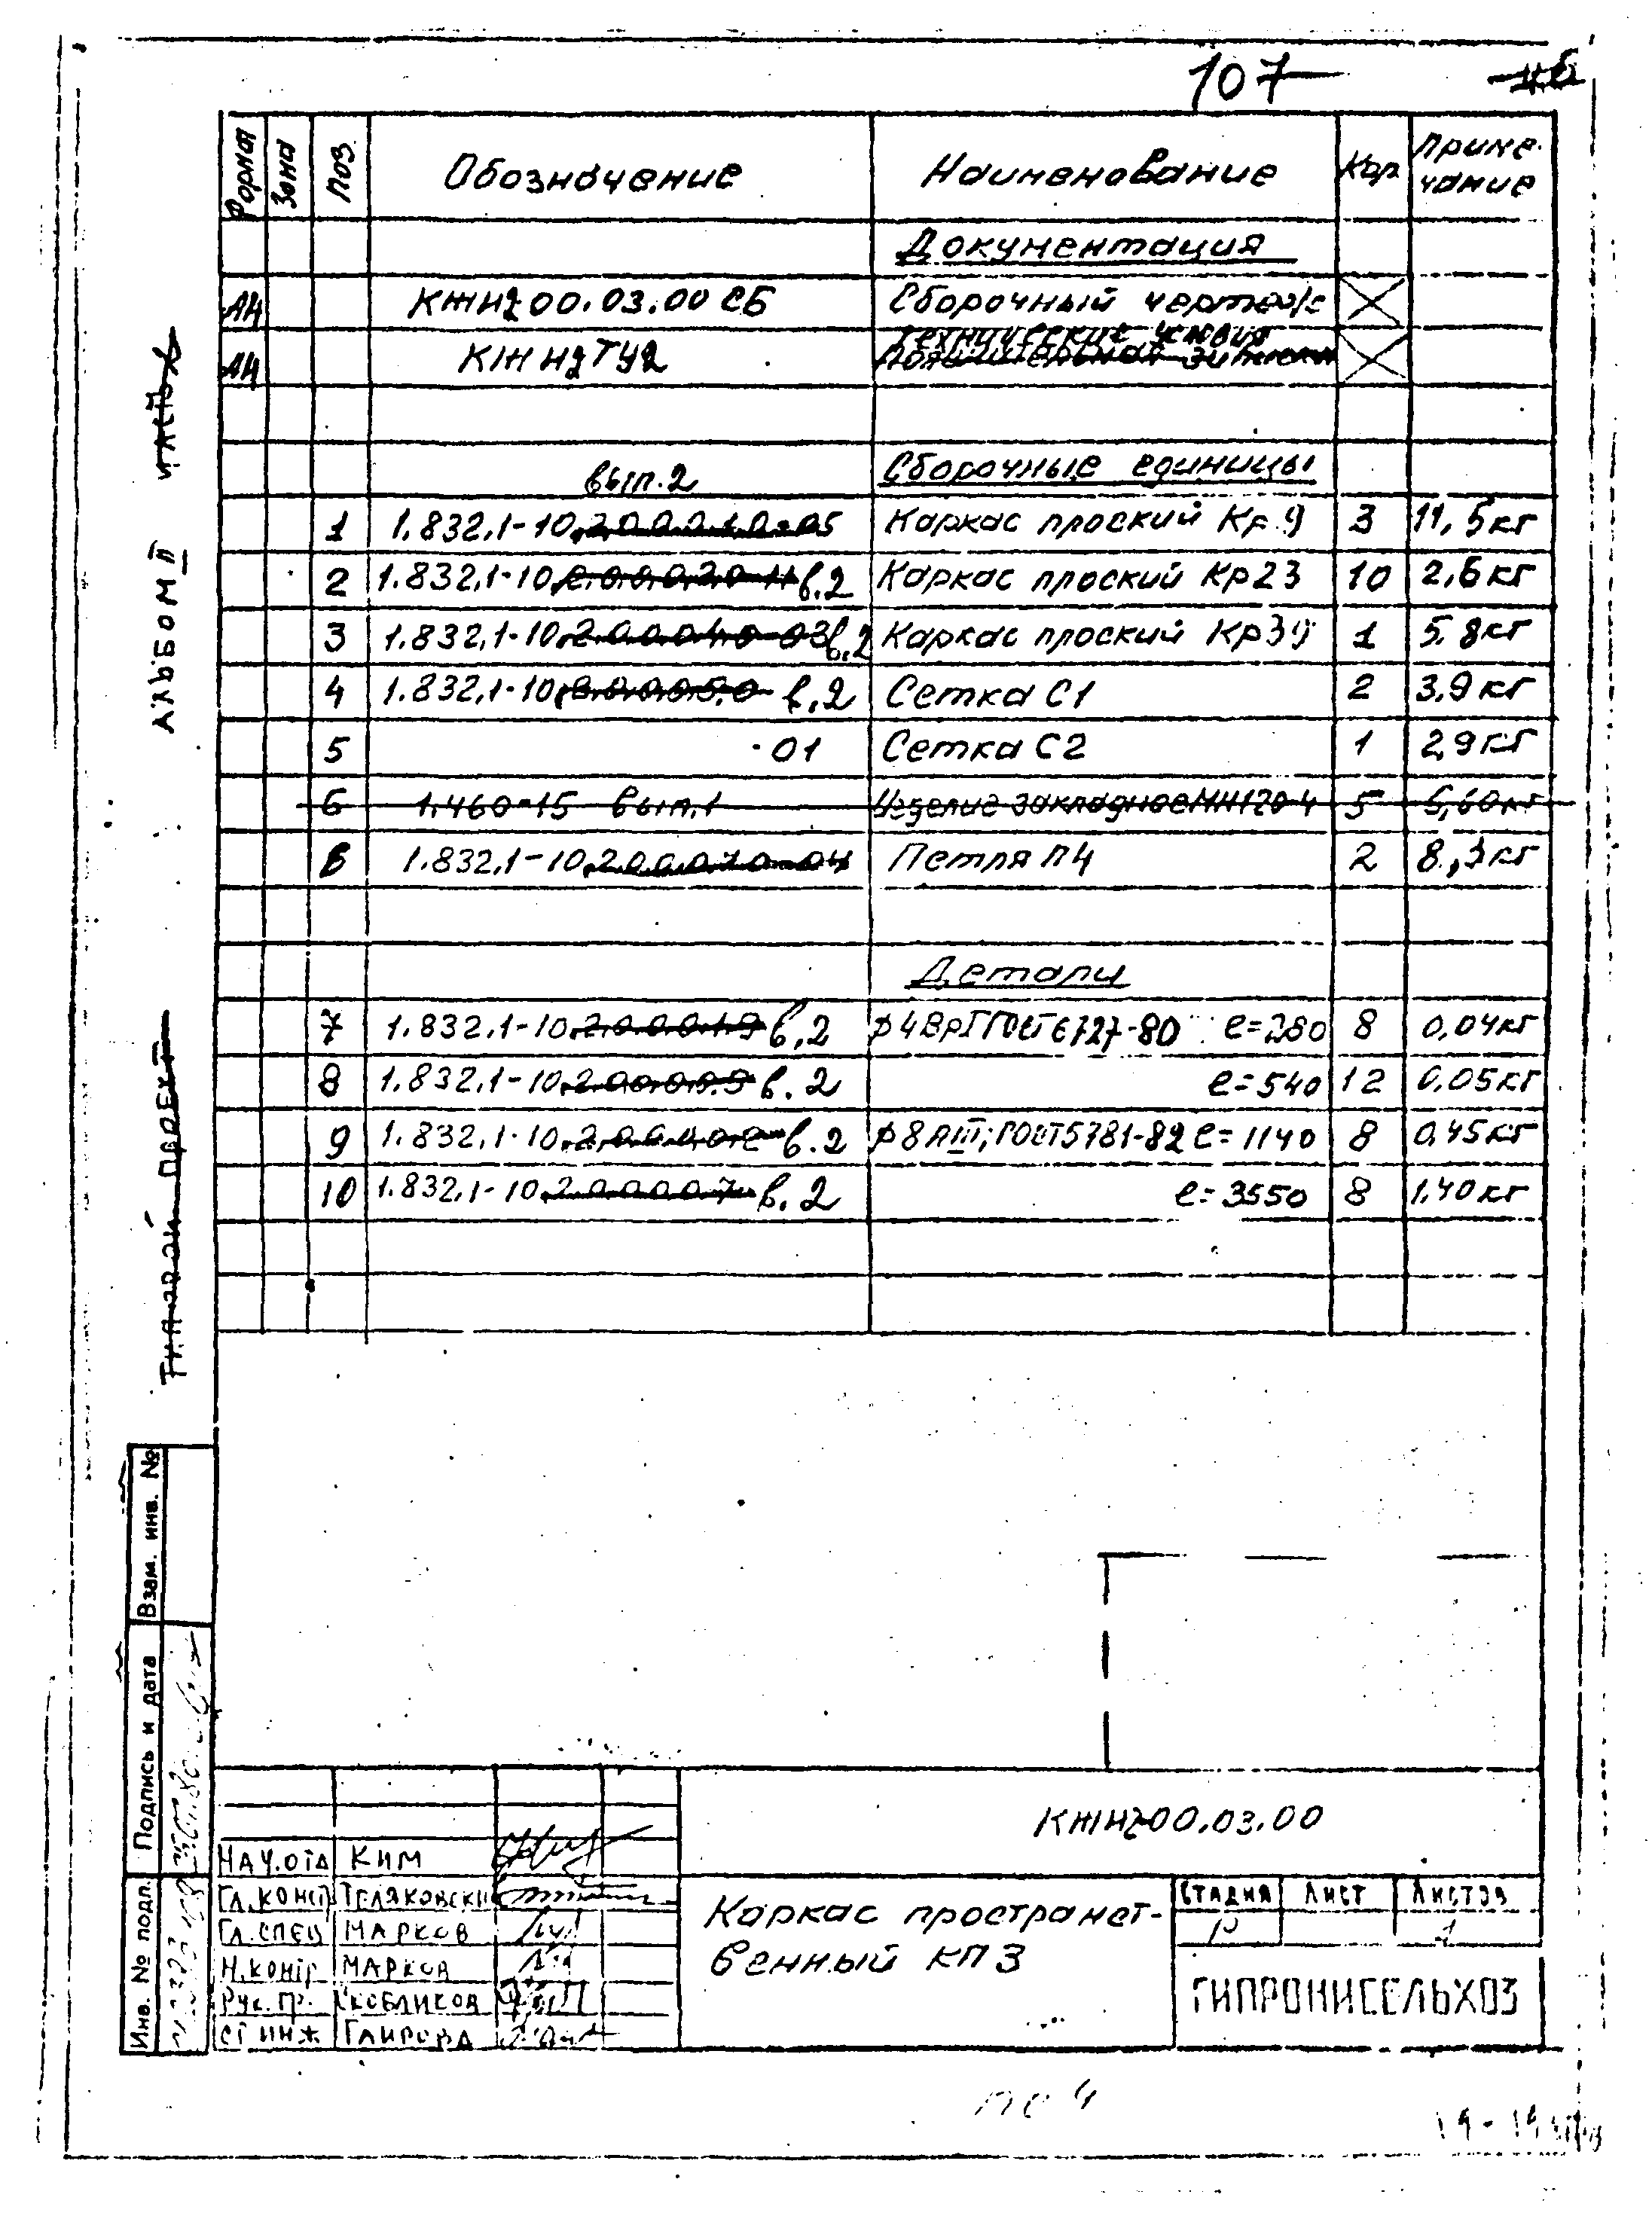 107
Форма Зона Поз Обозначение Наименование Кол Примечание
Документация
А4 КЖН200.03.00 СБ Сборочный чертеж
Технические условия
А4 КЖН2ТУ2 Пояснительная записка
вып.2 Сборочные единицы
1 1.832.1-10.2.0.0.0.1.0-05 Каркас плоский Кр 9 3 11,5кг
2 1.832.1-10.2.0.0.0.2.0-11 в.2 Каркас плоский Кр23 10 2,6кг
3 1.832.1-10.2.0.0.0.4.0-03 в.2 Каркас плоский Кр39 1 5,8кг
4 1.832.1-10.2.0.0.0.5.0 в.2 Сетка С1 2 3,9кг
5 -01 Сетка С2 1 2,9кг
6 1.460-15 вып.1 Изделие закладное МН120-4 5 5,60кг
6 1.832.1-10.2.0.0.0.7.0-04 Петля П4 2 8,3кг
Детали
7 1.832.1-10.2.0.0.0.1.9 в.2 ф4ВрI ГОСТ 6727-80 ℓ=280 8 0,04кг
8 1.832.1-10.2.0.0.0.0.9 в.2 ℓ=540 12 0,05кг
9 1.832.1-10.2.0.0.0.0.2 в.2 ф8АIII; ГОСТ5781-82 ℓ=1140 8 0,45кг
10 1.832.1-10.2.0.0.0.0.7 в.2 ℓ=3550 8 1,40кг
АЛЬБОМ II ЧАСТЬ
Типовой проект
Взам. инв. №
Подпись и дата
Инв. № подл.
КЖН200.03.00
НАЧ.ОТД КИМ
ГЛ.КОНСТ ТЕЛЯКОВСКИ
ГЛ.СПЕЦ МАРКОВ
Н.КОНТР МАРКОВ
РУК.ГР. СКОБЛИКОВ
СТ ИНЖ ГАИРОВА
Каркас пространст-
венный КП3
СТАДИЯ ЛИСТ ЛИСТОВ
Р 1
ГИПРОНИСЕЛЬХОЗ